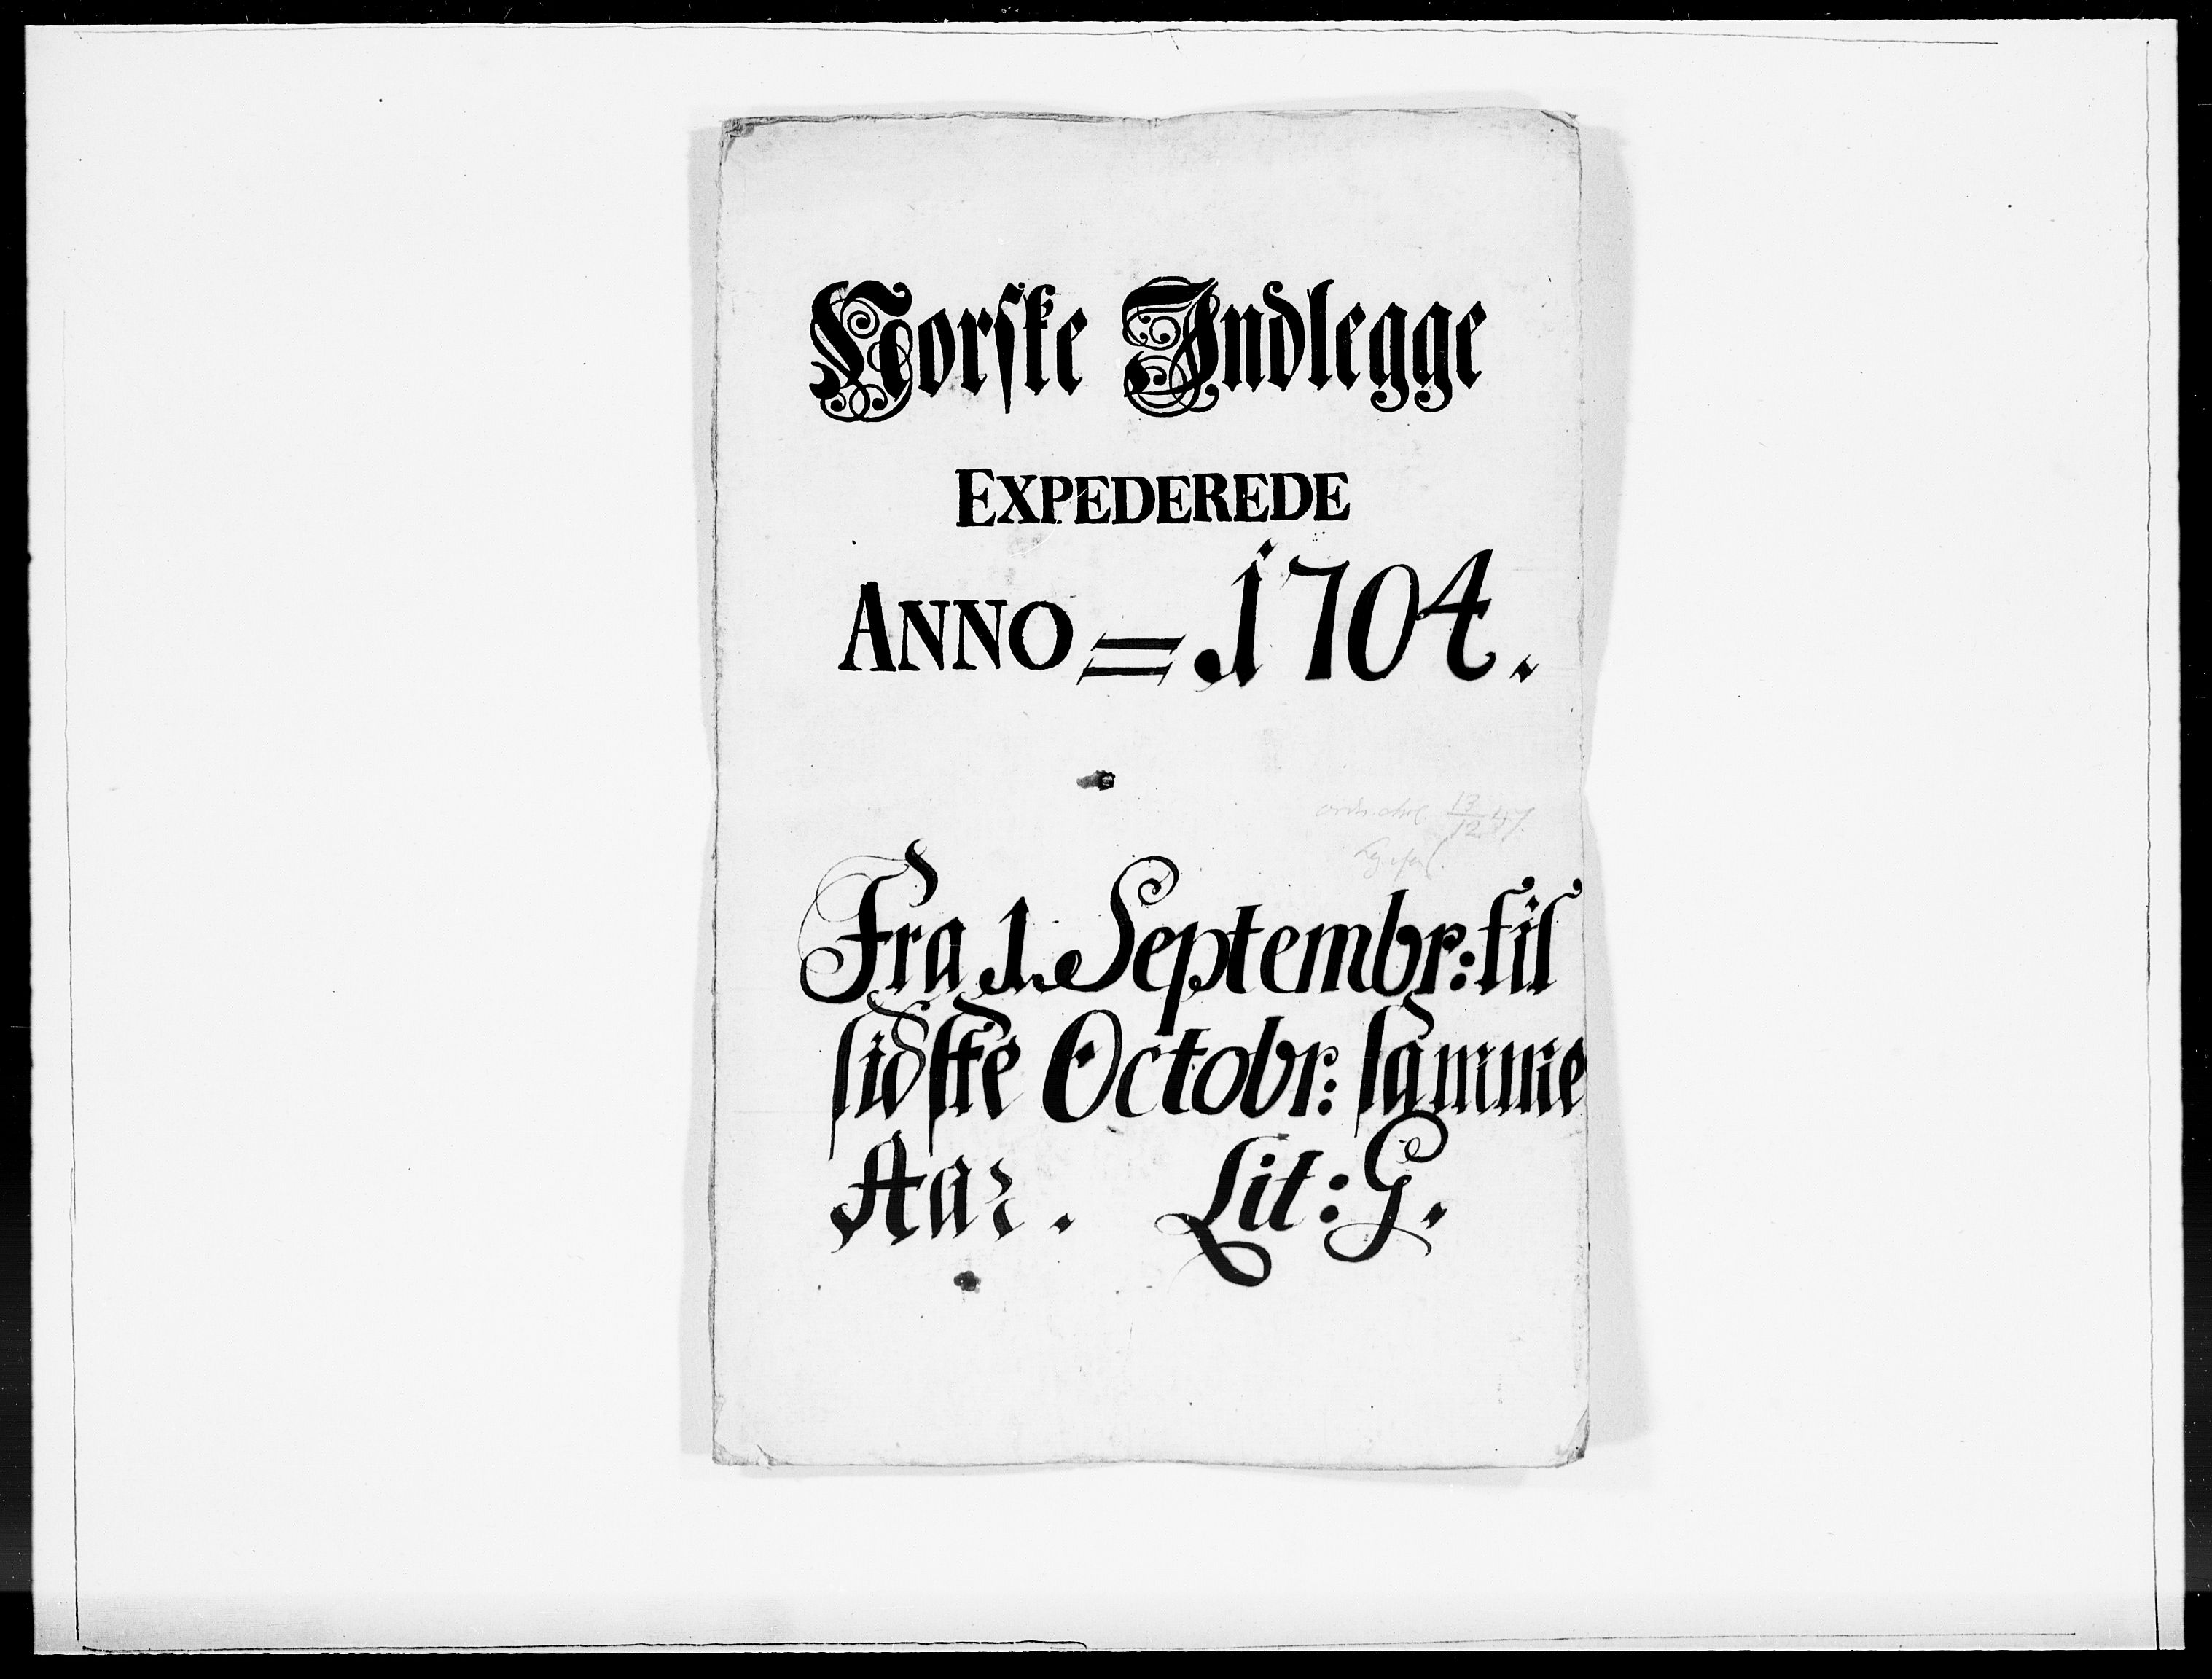 Norske Indlegge
EXPEDEREDE
ANNO = 1704.
13/12 47.
Fra 1. Septembr: til
sidste Octobr: samme
Aar. Lit: G.